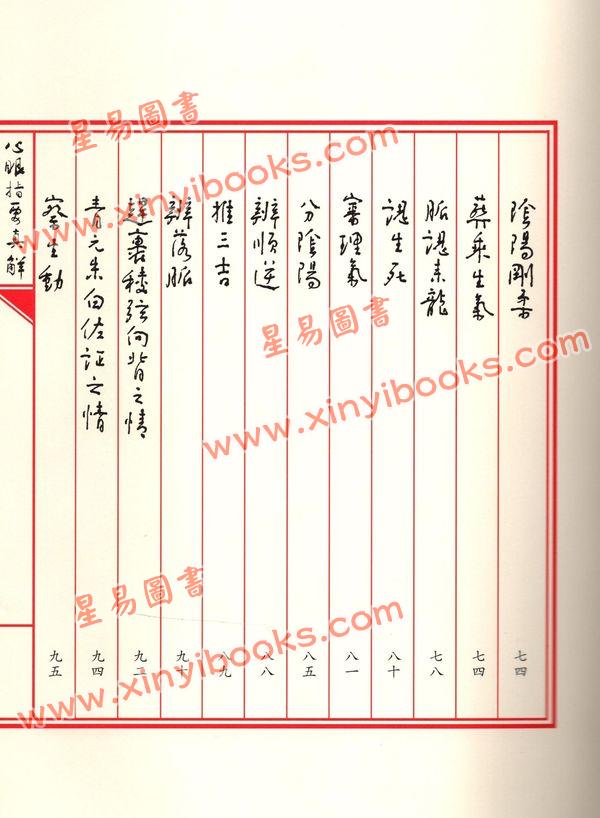 陰陽剛柔 七四
葬乘生氣 七四
脈認來龍 七八
認生死 八十
審理氣 八一
分陰陽 八五
辨順逆 八八
推三吉 八九
辨落脈 九十
裏稜弦向背之情 九二
青元朱白佐証之情 九四
察生動 九五
心眼指要真解
星易圖書
www.xinyibooks.com
星易圖書
www.xinyibooks.com
星易圖書
www.xinyibooks.com